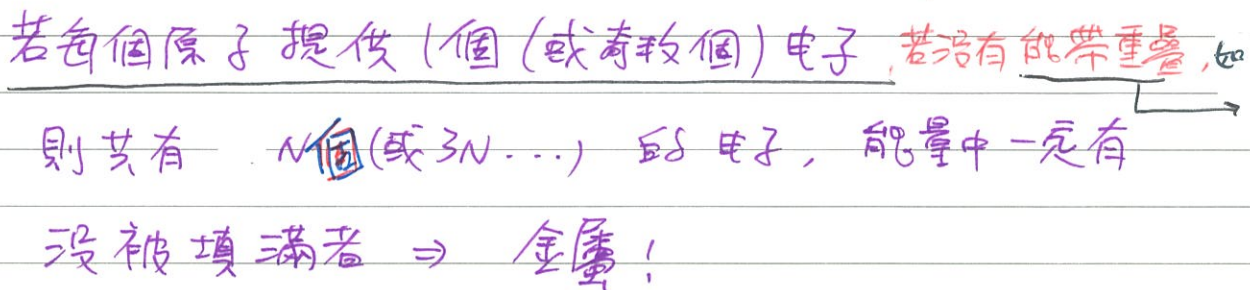 若每個原子提供1個(或奇數個)电子,若沒有能帶重疊,如
則共有 N個(或3N...) 的电子,能量中一定有
沒被填滿者 ⇒ 金屬!